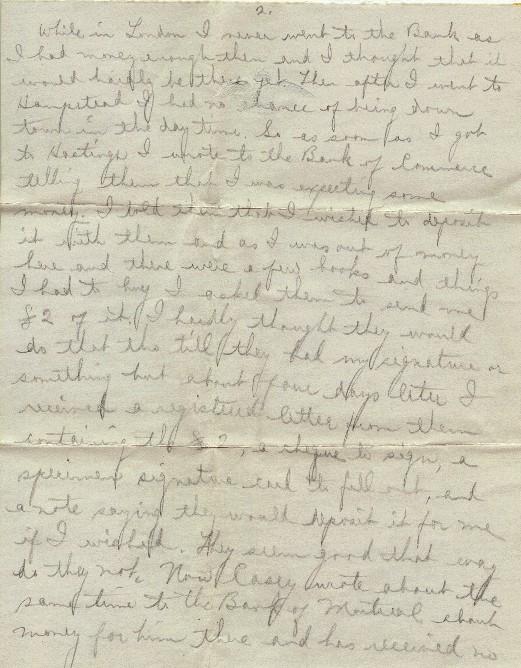 2.
While in London I never went to the Bank as
I had money enough then and I thought that it
would hardly be there yet. Then after I went to
Hampstead I had no chance of being down
town in the day time. So as soon as I got
to Hastings I wrote to the Bank of Commerce
telling them that I was expecting some
money. I told them that I wished to deposit
it with them and as I was out of money
here and there were a few books and things
I had to buy I asked them to send me
£2 of it. I hardly thought they would
do that tho till they had my signature or
something but about four days later I
received a registered letter from them
containing the £2, a cheque to sign, a
specimen signature card to fill out, and
a note saying they would deposit it for me
if I wished. They seem good that way
do they not. Now Casey wrote about the
same time to the Bank of Montreal about
money for him there and has received no